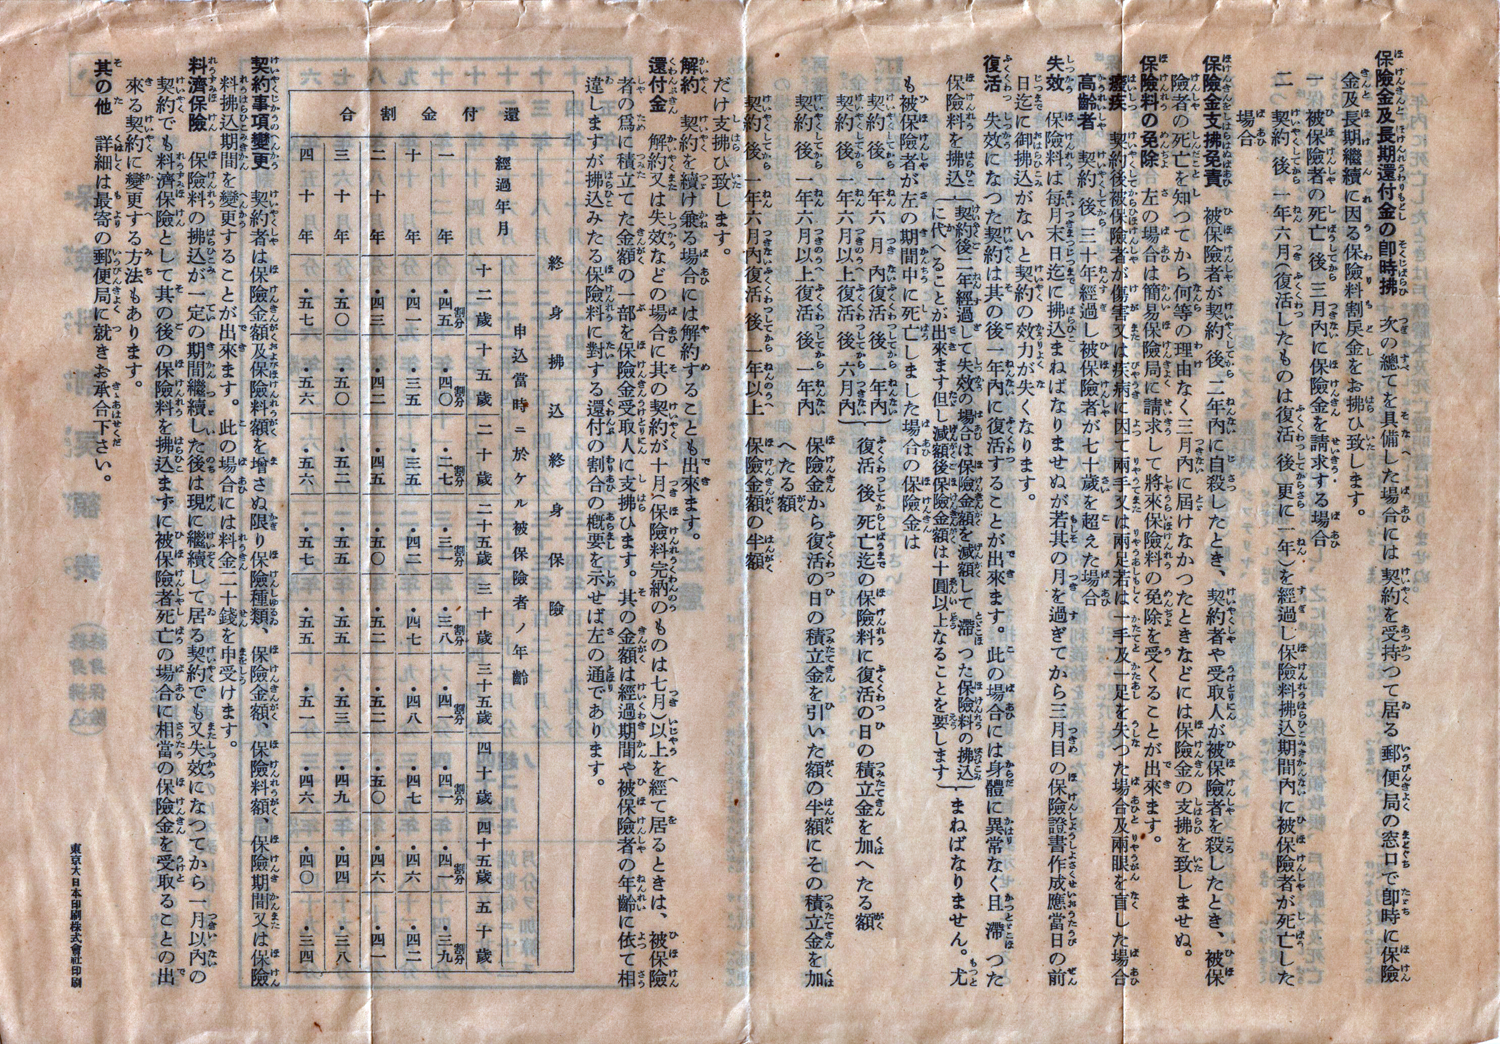 保險金及長期還付金の卽時拂　次の總てを具備した場合には契約を受持つて居る郵便局の窓口で卽時に保險
金及長期繼續に因る保險料割戾金をお拂ひ致します。
一　被保險者の死亡後三月內に保險金を請求する場合
二　契約後一年六月(復活したものは復活後更に二年)を經過し保險料拂込期間內に被保險者が死亡した
場合
保險金支拂免責　被保險者が契約後二年內に自殺したとき、契約者や受取人が被保險者を殺したとき、被保
險者の死亡を知つてから何等の理由なく三月內に屆けなかつたときなどには保險金の支拂を致しませぬ。
保險料の免除　左の場合は簡易保險局に請求して將來保險料の免除を受くることが出來ます。
癈疾　契約後被保險者が傷害又は疾病に因て兩手又は兩足若は一手及一足を失つた場合及兩眼を盲した場合
高齡者　契約後三十年經過し被保險者が七十歲を超えた場合
失效　保險料は每月末日迄に拂込まねばなりませぬが若其の月を過ぎてから三月目の保險證書作成應當日の前
日迄に御拂込がないと契約の效力が失くなります。
復活　失效になつた契約は其の後一年內に復活することが出來ます。此の場合には身體に異常なく且滯つた
保險料を拂込(契約後二年經過して失效の場合は保險金額を減額して滯つた保險料の拂込
に代へることが出來ます但し減額後保險金額は十圓以上なることを要します)まねばなりません。尤
も被保險者が左の期間中に死亡しました場合の保險金は
契約後一年六月內復活後一年內
契約後一年六月以上復活後六月內　復活後死亡迄の保險料に復活の日の積立金を加へたる額
契約後一年六月以上復活後一年內　保險金から復活の日の積立金を引いた額の半額にその積立金を加
へたる額
契約後一年六月內復活後一年以上　保險金額の半額
だけ支拂ひ致します。
解約　契約を續け兼る場合には解約することも出來ます。
還付金　解約又は失效などの場合に其の契約が十月(保險料完納のものは七月)以上を經て居るときは、被保險
者の爲に積立てた金額の一部を保險金受取人に支拂ひます。其の金額は經過期間や被保險者の年齡に依て相
違しますが拂込みたる保險料に對する還付の割合の槪要を示せば左の通であります。
終身拂込終身保險
申込當時ニ於ケル被保險者ノ年齡
經過年月　十二歲　十五歲　二十歲　二十五歲　三十歲　三十五歲　四十歲　四十五歲　五十歲
還付金割合
一年　割分・四五　割分・四〇　割分・二七　割分・三一　割分・三八　割分・四一　割分・四一　割分・四一　割分・三九
十年　・四一　・三五　・三五　・四二　・四七　・四八　・四七　・四六　・四二
二十年　・四三　・四二　・四五　・五〇　・五二　・五二　・五〇　・四六　・四一
三十年　・五〇　・五〇　・五二　・五五　・五五　・五三　・四九　・四四　・三八
四十年　・五七　・五六　・五六　・五七　・五五　・五一　・四六　・四〇　・三四
契約事項變更　契約者は保險金額及保險料額を增さぬ限り保險種類、保險金額、保險料額、保險期間又は保險
料拂込期間を變更することが出來ます。此の場合には料金二十錢を申受けます。
料濟保險　保險料の拂込が一定の期間繼續した後は現に繼續して居る契約でも又失效になつてから一月以內の
契約でも料濟保險として其の後の保險料を拂込まずに被保險者死亡の場合に相當の保險金を受取ることの出
來る契約に變更する方法もあります。
其の他　詳細は最寄の郵便局に就きお承合下さい。
東京大日本印刷株式會社印刷